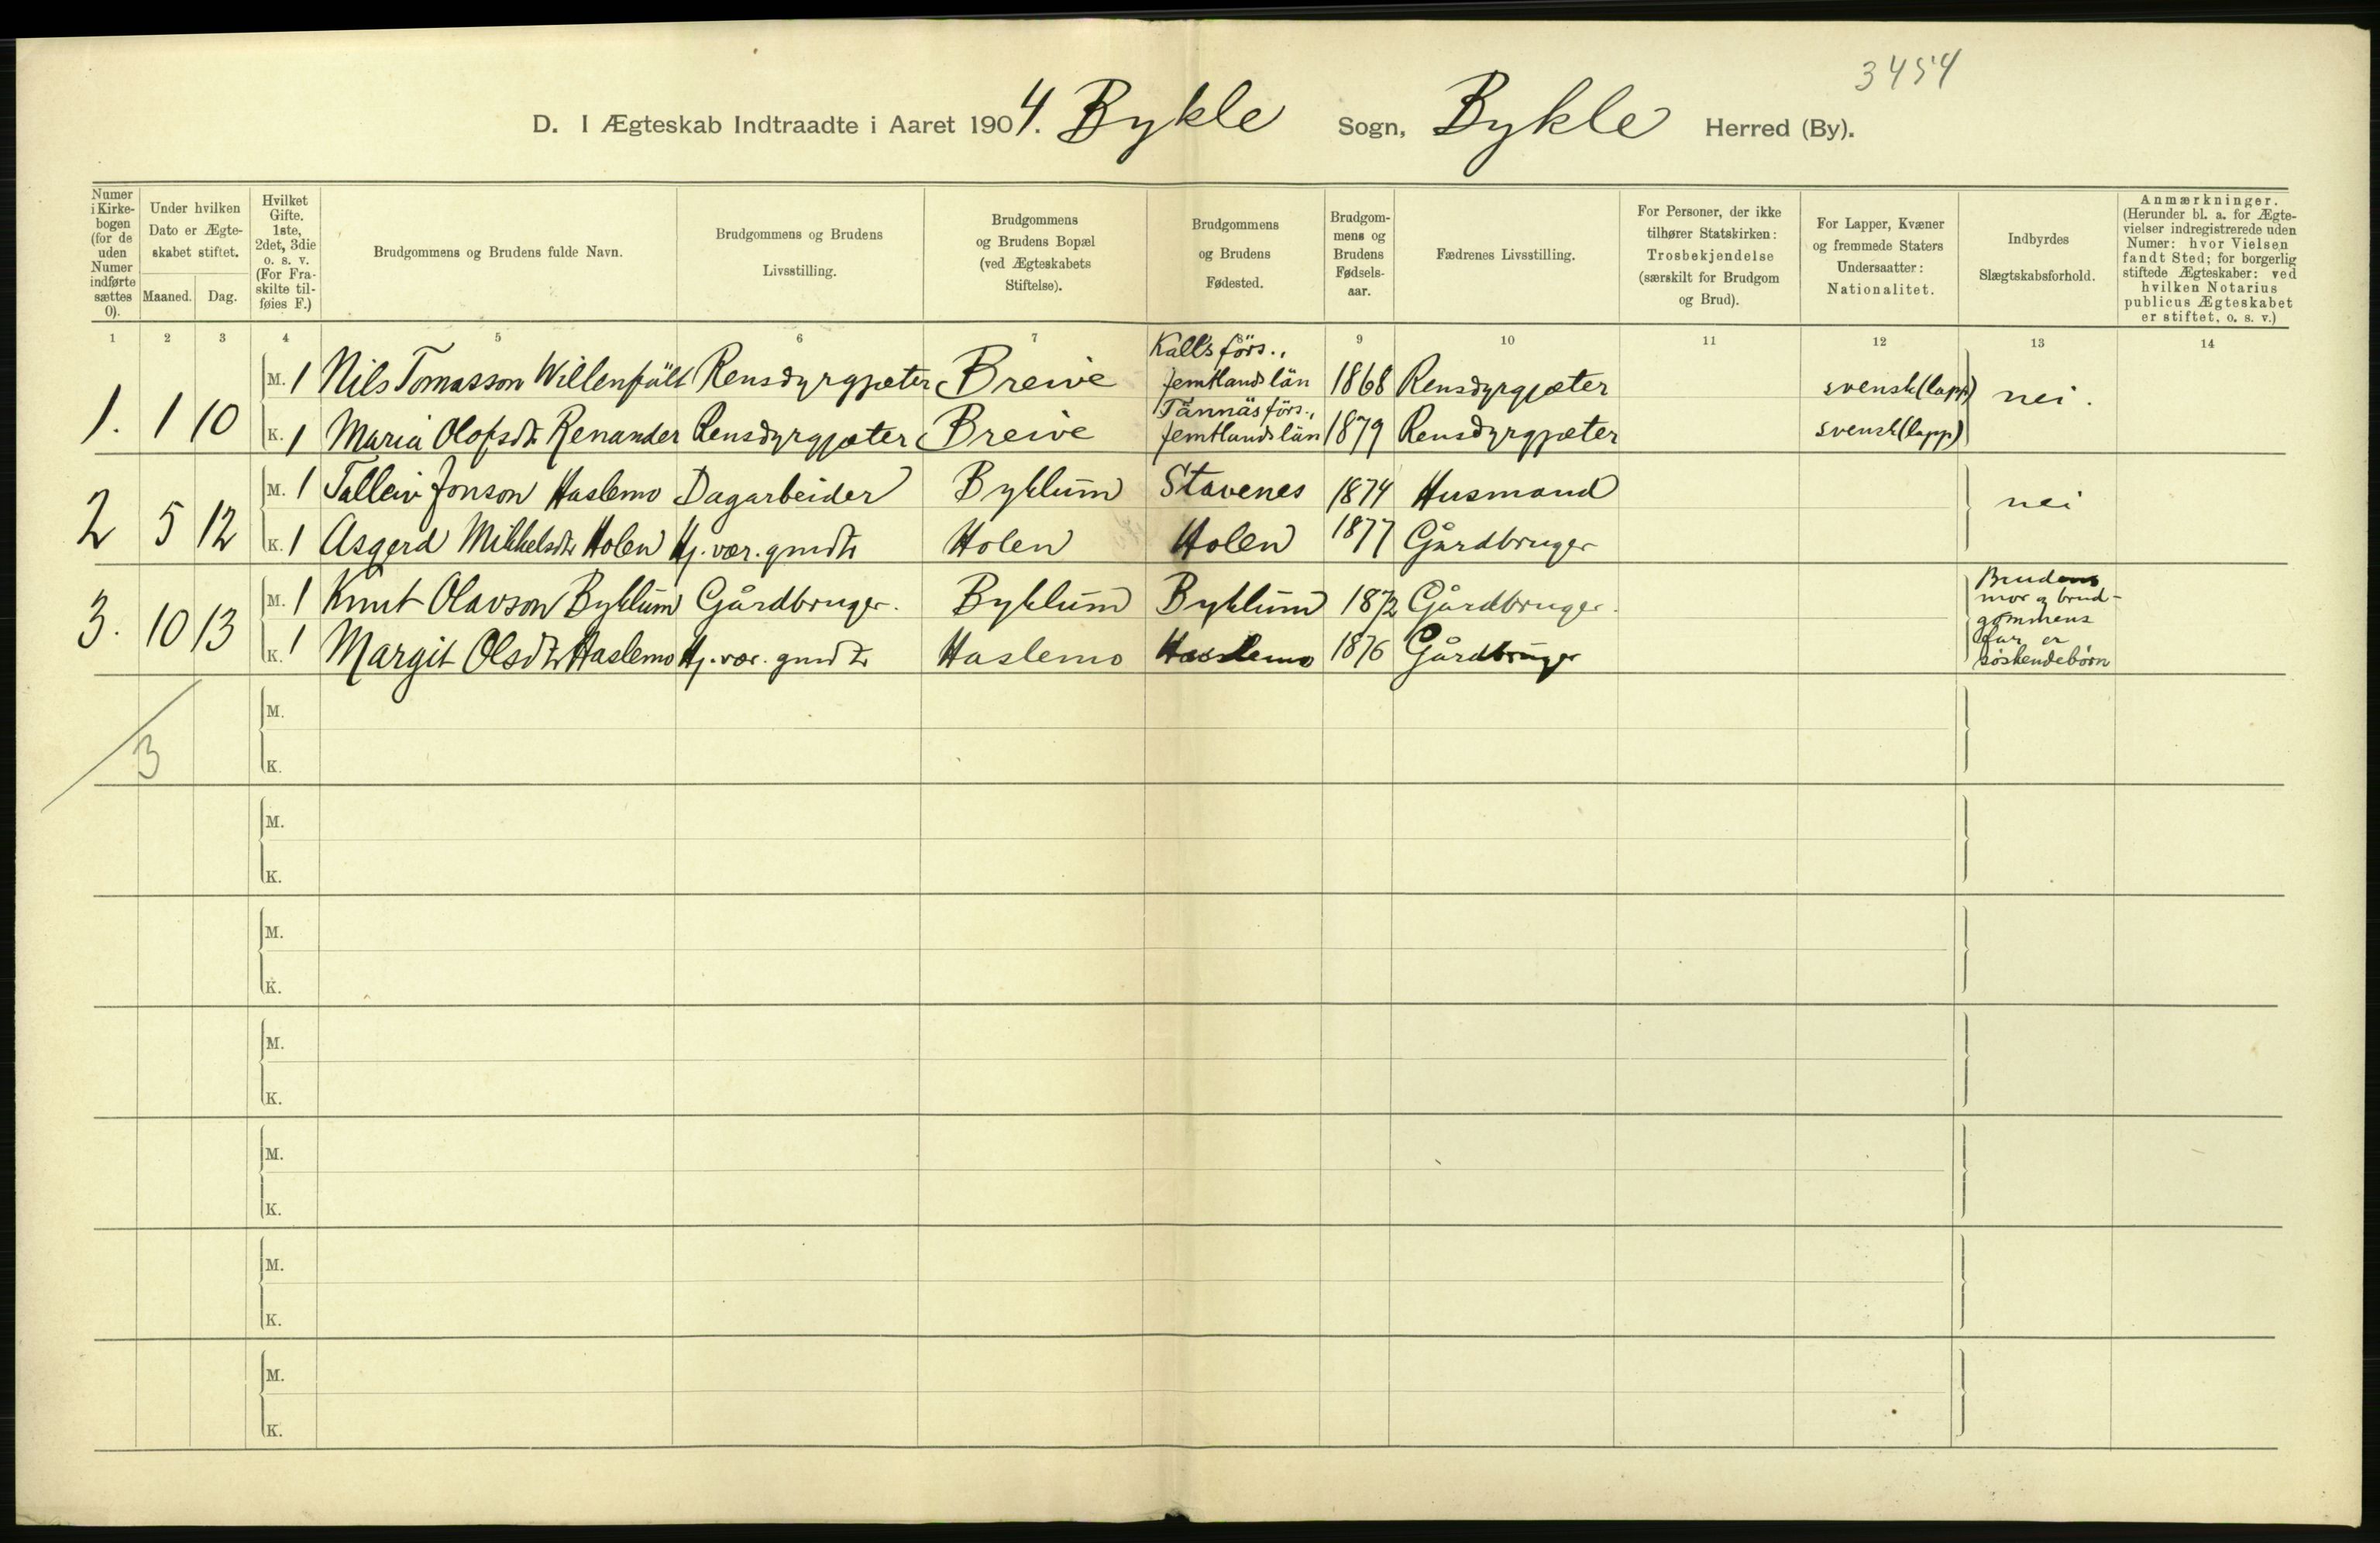 3454
D. I Ægteskab Indtraadte i Aaret 1904. Bykle Sogn, Bykle Herred (By).
Numer i Kirkebogen (for de uden Numer indførte sættes 0).
Under hvilken Dato er Ægteskabet stiftet.
Maaned. Dag.
Hvilket Gifte. 1ste, 2det, 3die o. s. v. (For Fraskilte tilføies F.)
Brudgommens og Brudens fulde Navn.
Brudgommens og Brudens Livsstilling.
Brudgommens og Brudens Bopæl (ved Ægteskabets Stiftelse).
Brudgommens og Brudens Fødested.
Brudgommens og Brudens Fødselsaar.
Fædrenes Livsstilling.
For Personer, der ikke tilhører Statskirken: Trosbekjendelse (særskilt for Brudgom og Brud).
For Lapper, Kvæner og fremmede Staters Undersaatter: Nationalitet.
Indbyrdes Slægtskabsforhold.
Anmærkninger. (Herunder bl. a. for Ægtevielser indregistrerede uden Numer: hvor Vielsen fandt Sted; for borgerlig stiftede Ægteskaber: ved hvilken Notarius publicus Ægteskabet er stiftet, o. s. v.)
1 2 3 4 5 6 7 9 10 11 12 13 14
1. 1 10
M. 1 Nils Tomasson Willenfält Rensdyrgjæter Breive Kalls förs., Jemtlands län 1868 Rensdyrgjæter svensk (lapp) nei.
K. 1 Maria Olofsdtr Renander Rensdyrgjæter Breive Tännäs förs., Jemtlands län 1879 Rensdyrgjæter svensk (lapp)
2 5 12
M. 1 Talleiv Jonson Haslemo Dagarbeider Byklum Stavenes 1874 Husmand nei
K. 1 Asgerd Mikkelsdtr Holen Hj. vær. gmdtr Holen Holen 1877 Gårdbruger
3. 10 13
M. 1 Knut Olavson Byklum Gårdbruger. Byklum Byklum 1872 Gårdbruger. Brudens mor og brudgommens far er søskendebørn
K. 1 Margit Olsdtr Haslemo Hj. vær. gmdtr Haslemo Haslemo 1876 Gårdbruger
3
M.
K.
M.
K.
M.
K.
M.
K.
M.
K.
M.
K.
M.
K.